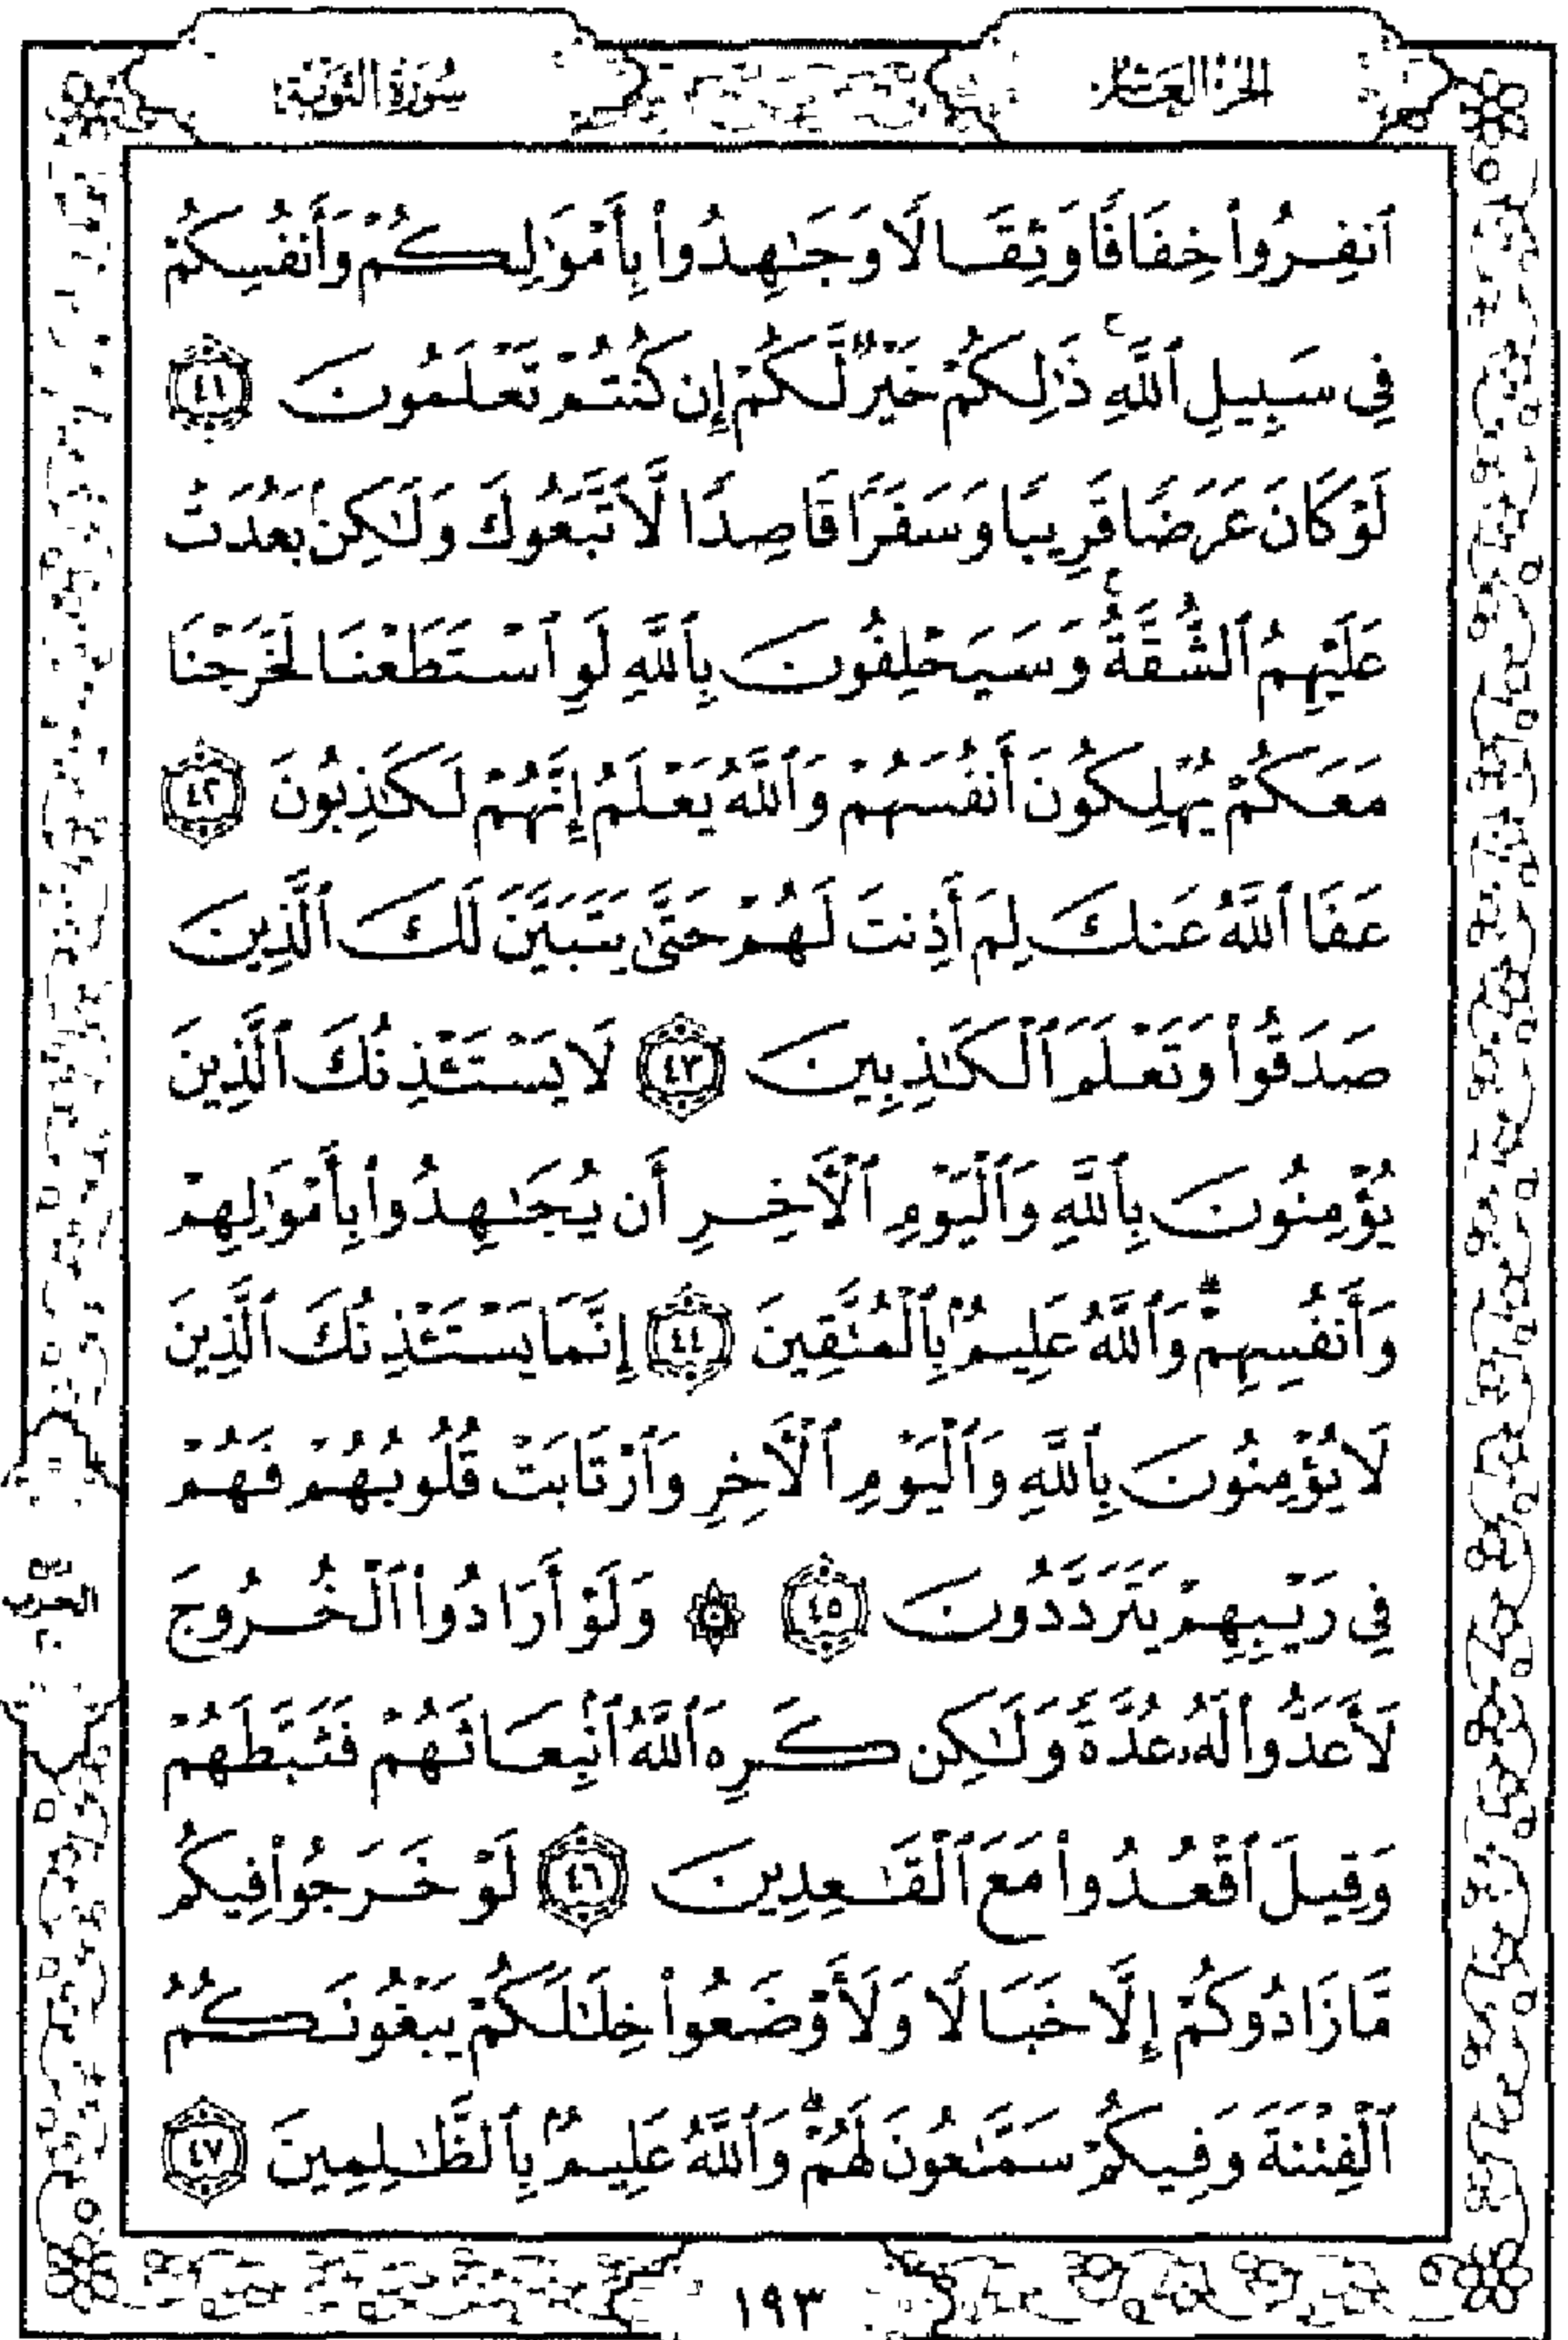 الجزء العاشر
سورة التوبة
ٱنفِرُوا۟ خِفَافًا وَثِقَالًا وَجَـٰهِدُوا۟ بِأَمْوَٰلِكُمْ وَأَنفُسِكُمْ
فِي سَبِيلِ ٱللَّهِ ۚ ذَٰلِكُمْ خَيْرٌ لَّكُمْ إِن كُنتُمْ تَعْلَمُونَ ٤١
لَوْ كَانَ عَرَضًا قَرِيبًا وَسَفَرًا قَاصِدًا لَّٱتَّبَعُوكَ وَلَـٰكِنۢ بَعُدَتْ
عَلَيْهِمُ ٱلشُّقَّةُ ۚ وَسَيَحْلِفُونَ بِٱللَّهِ لَوِ ٱسْتَطَعْنَا لَخَرَجْنَا
مَعَكُمْ يُهْلِكُونَ أَنفُسَهُمْ وَٱللَّهُ يَعْلَمُ إِنَّهُمْ لَكَـٰذِبُونَ ٤٢
عَفَا ٱللَّهُ عَنكَ لِمَ أَذِنتَ لَهُمْ حَتَّىٰ يَتَبَيَّنَ لَكَ ٱلَّذِينَ
صَدَقُوا۟ وَتَعْلَمَ ٱلْكَـٰذِبِينَ ٤٣ لَا يَسْتَـْٔذِنُكَ ٱلَّذِينَ
يُؤْمِنُونَ بِٱللَّهِ وَٱلْيَوْمِ ٱلْـَٔاخِرِ أَن يُجَـٰهِدُوا۟ بِأَمْوَٰلِهِمْ
وَأَنفُسِهِمْ ۗ وَٱللَّهُ عَلِيمٌۢ بِٱلْمُتَّقِينَ ٤٤ إِنَّمَا يَسْتَـْٔذِنُكَ ٱلَّذِينَ
لَا يُؤْمِنُونَ بِٱللَّهِ وَٱلْيَوْمِ ٱلْـَٔاخِرِ وَٱرْتَابَتْ قُلُوبُهُمْ فَهُمْ
فِي رَيْبِهِمْ يَتَرَدَّدُونَ ٤٥ ۞ وَلَوْ أَرَادُوا۟ ٱلْخُرُوجَ
الحزب
لَأَعَدُّوا۟ لَهُۥ عُدَّةً وَلَـٰكِن كَرِهَ ٱللَّهُ ٱنۢبِعَاثَهُمْ فَثَبَّطَهُمْ
وَقِيلَ ٱقْعُدُوا۟ مَعَ ٱلْقَـٰعِدِينَ ٤٦ لَوْ خَرَجُوا۟ فِيكُم
مَّا زَادُوكُمْ إِلَّا خَبَالًا وَلَأَوْضَعُوا۟ خِلَـٰلَكُمْ يَبْغُونَكُمُ
ٱلْفِتْنَةَ وَفِيكُمْ سَمَّـٰعُونَ لَهُمْ ۗ وَٱللَّهُ عَلِيمٌۢ بِٱلظَّـٰلِمِينَ ٤٧
١٩٣